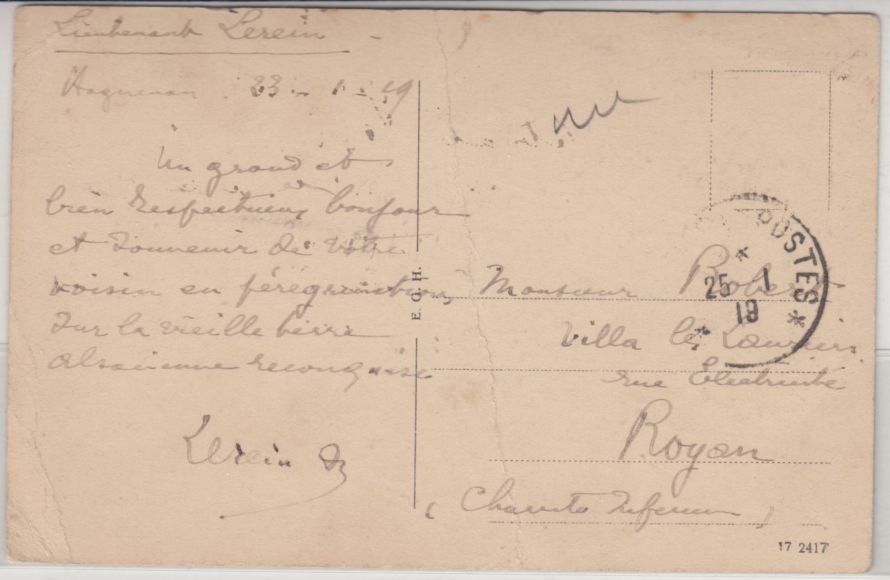 Lieutenant Lerein
Haguenau 23 - 1 - 19
Un grand et
bien respectueux bonjour
et souvenir de votre
voisin en pérégrinations
sur la vieille terre
alsacienne reconquise
Lerein
E. G. H.
POSTES
25 1
19
Monsieur Robert
Villa le Laurier
rue Electricité
Royan
(Charente Inferieure)
17 2417